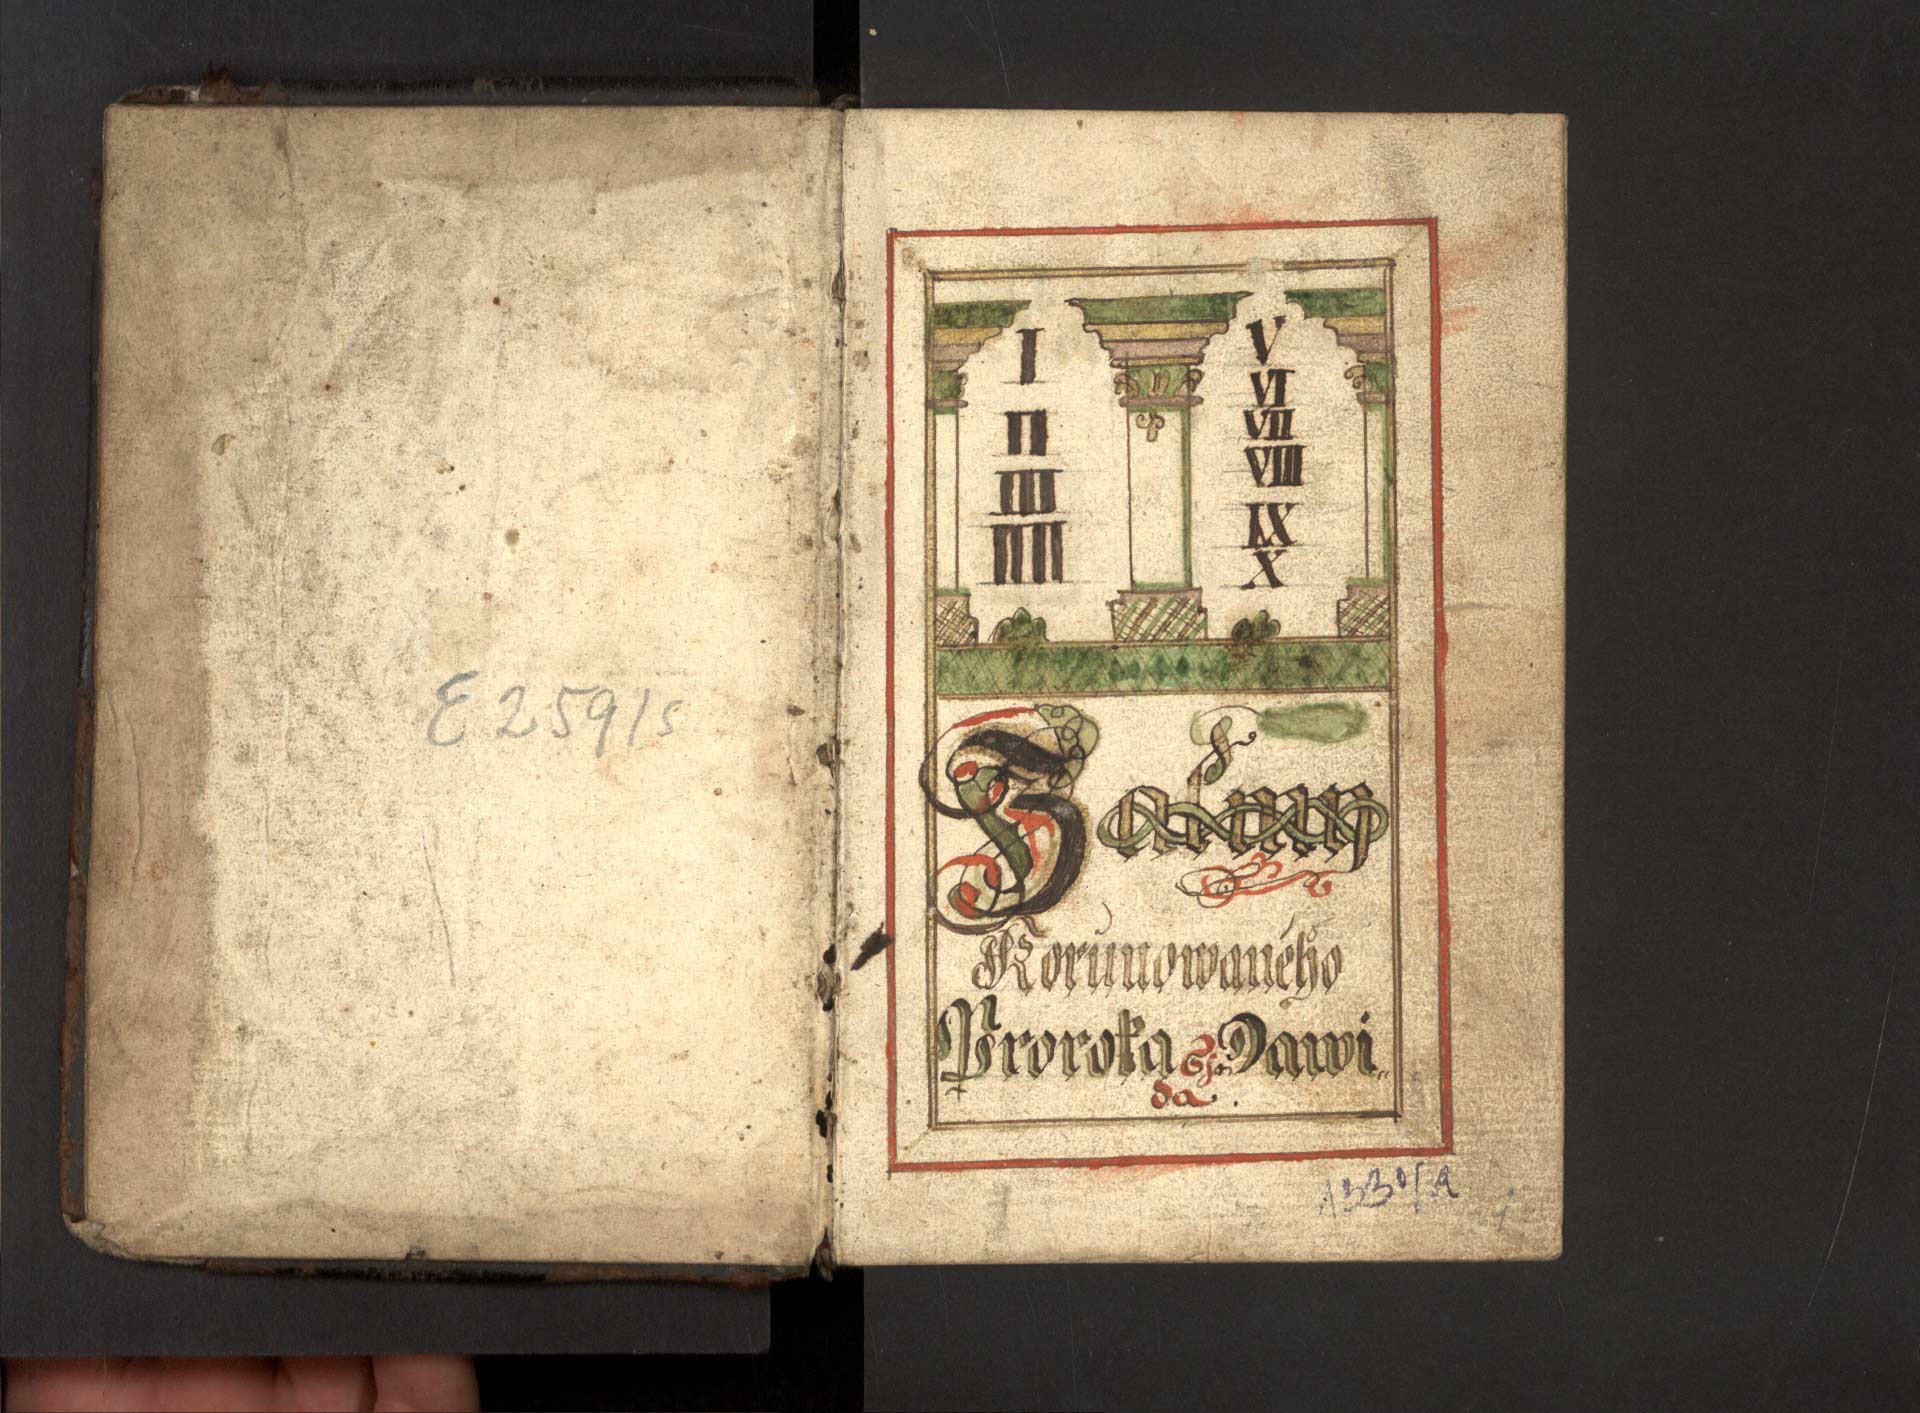 E 259/s
I
II
III
IIII
V
VI
VII
VIII
IX
X
Žalmy
Korunowaného
Proroka S: Dawi„
da.